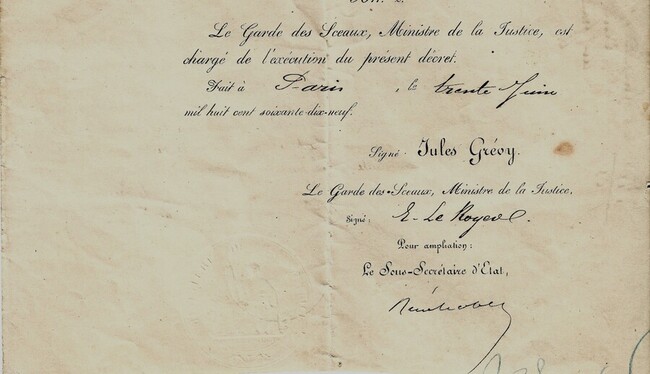 Le Garde des Sceaux, Ministre de la Justice, est
chargé de l'exécution du présent décret.
Fait à Paris, le trente Juin
mil huit cent soixante-dix-neuf.
Signé Jules Grévy.
Le Garde des Sceaux, Ministre de la Justice,
Signé: E. Le Royer
Pour ampliation:
Le Sous-Secrétaire d'État,